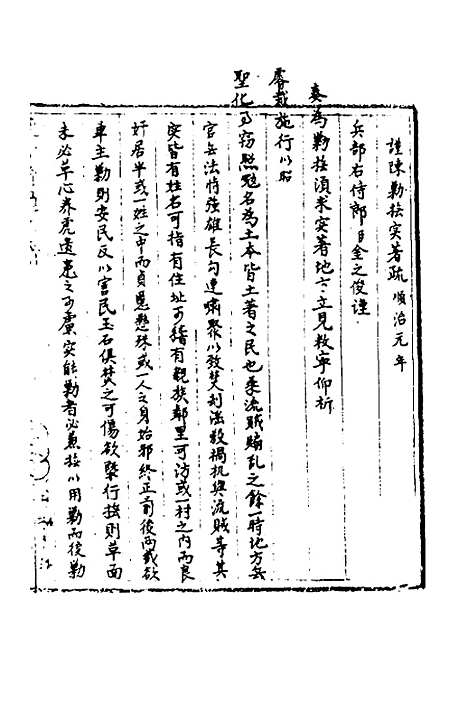 謹陳勦撫实著疏 順治元年
兵部右侍郎臣金之俊謹
奏為勦撫湏求实著地方立見救寧仰祈
睿裁施行以昭
聖化事窃照冦名為土本皆土著之民也乗流賊猖乱之餘一時地方无
官无法恃強雄長勾連嘯聚以致焚刦滋殺禍机與流賊等其
实皆有姓名可指有住址可稽有親族鄰里可访或一村之内而良
奸居半或一姓之中而貞慝懸殊或一人之身始邪終正前後两截欲
車主勦則安民反以害民玉石俱焚之可傷欲槩行撫則革面
未必革心养虎遗患之可慮实能勦者必兼撫以用勦而後勦